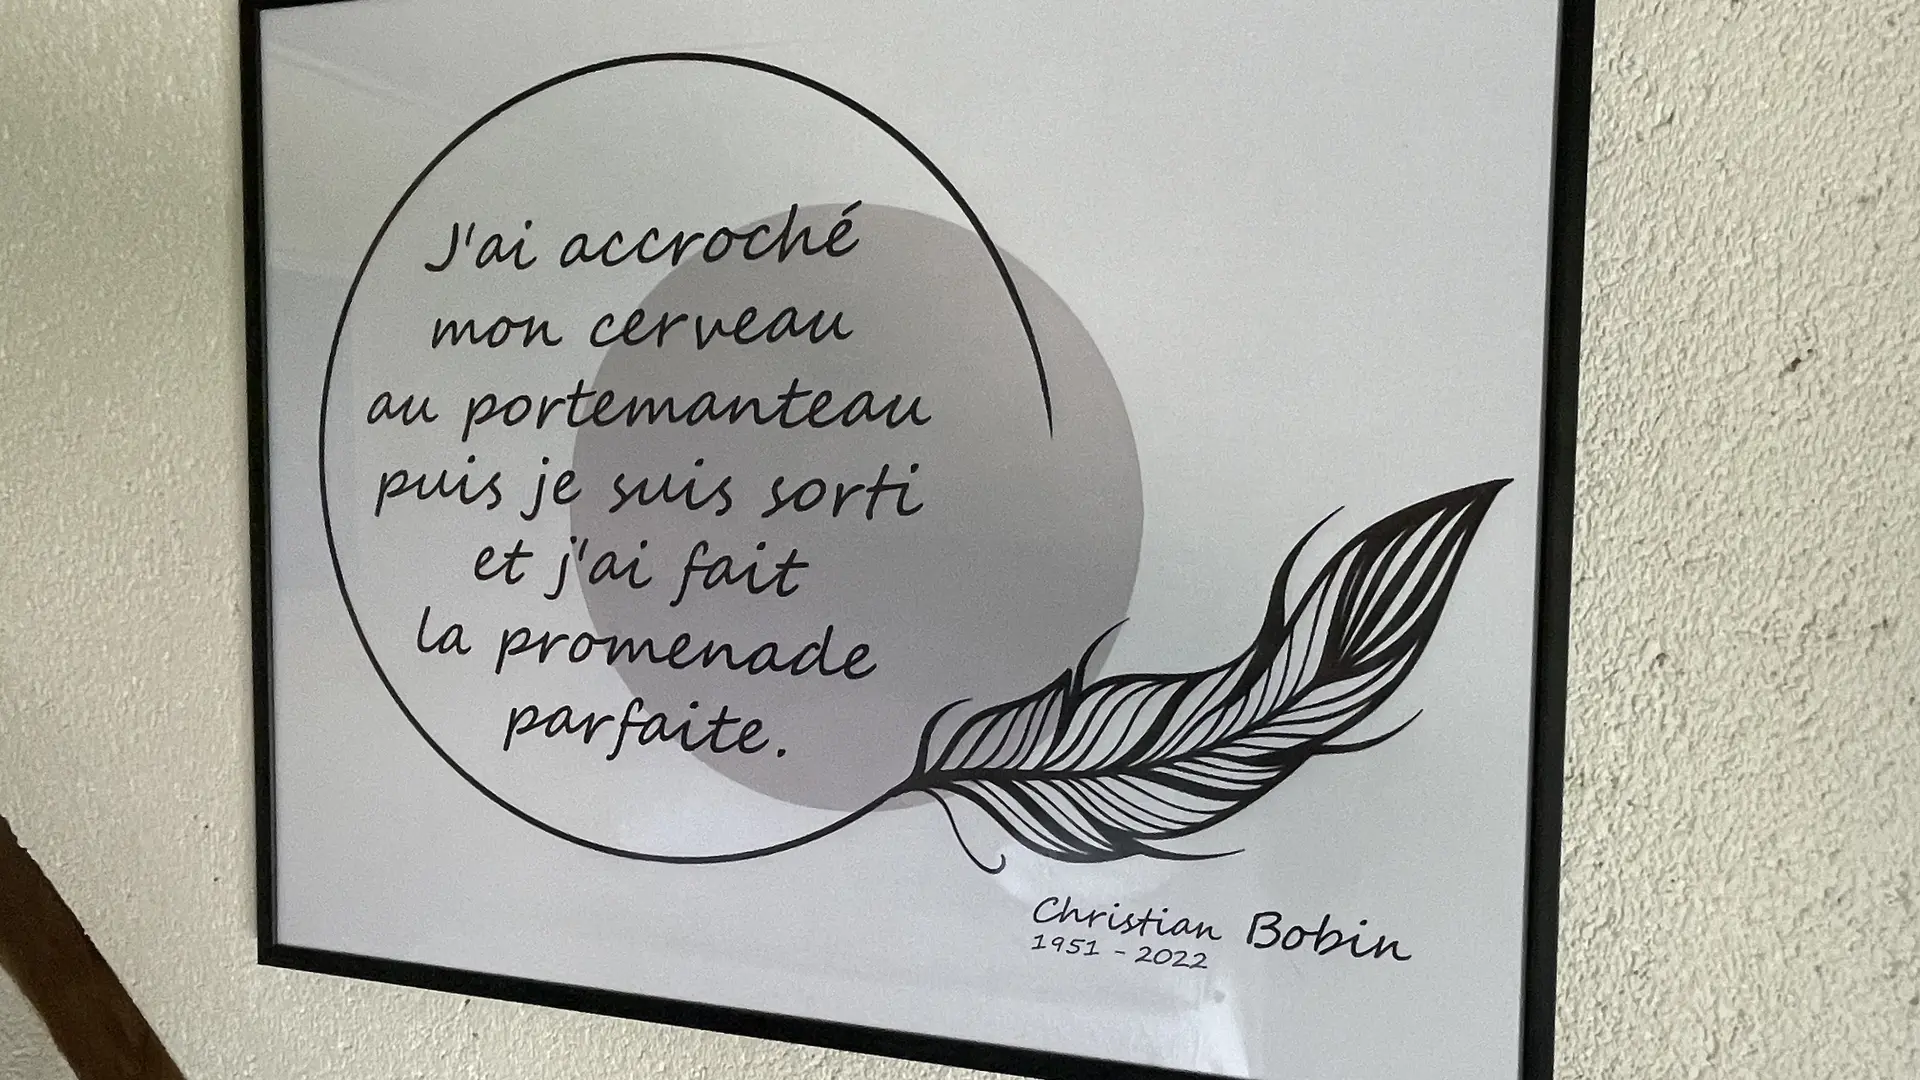 J'ai accroché
mon cerveau
au portemanteau
puis je suis sorti
et j'ai fait
la promenade
parfaite.
Christian Bobin
1951 - 2022